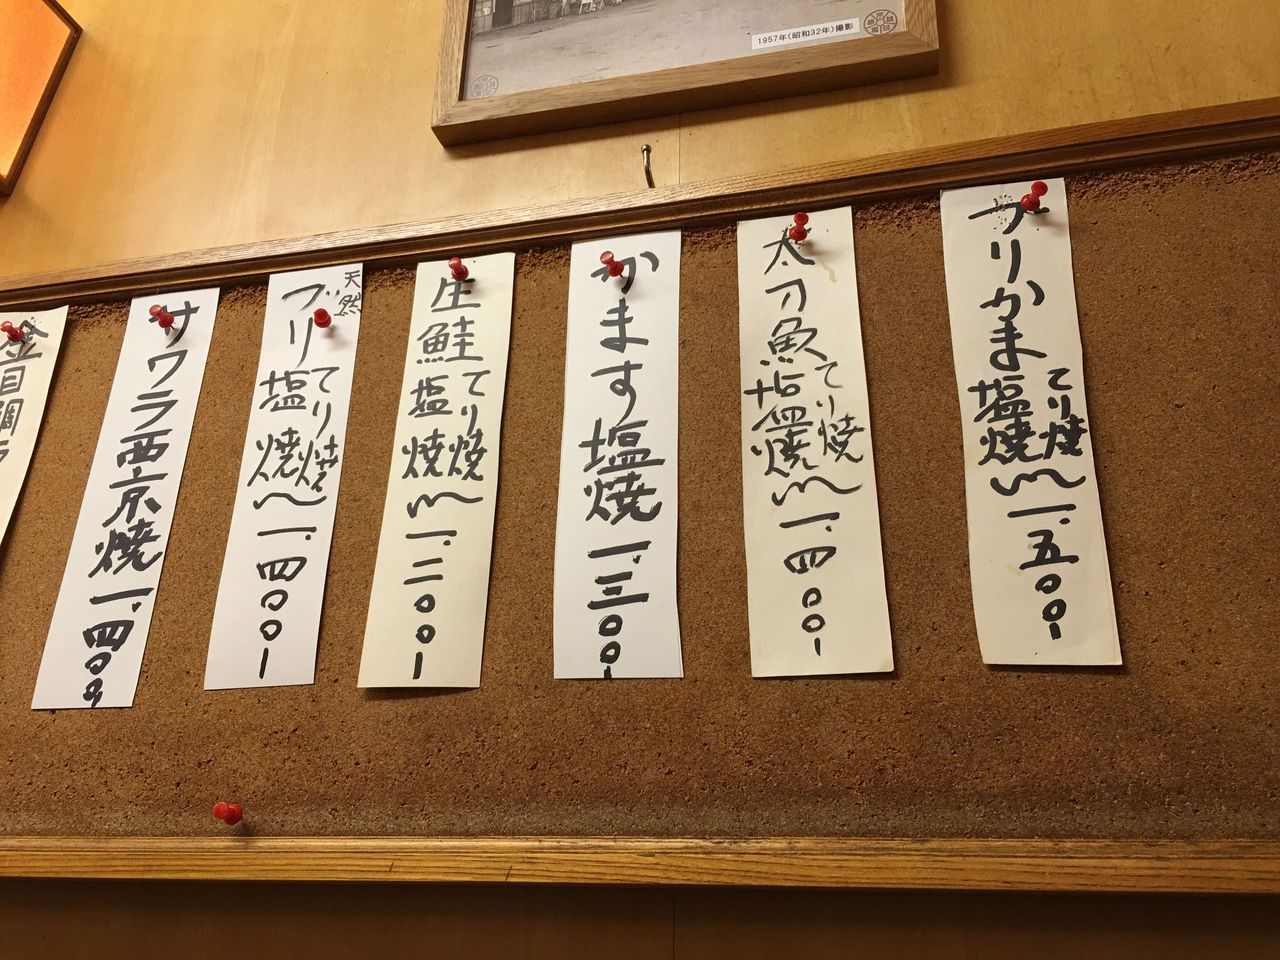 1957年(昭和32年)撮影
ブリかま塩焼 てり焼 一.五〇〇
太刀魚塩焼 てり焼 一.四〇〇
かます塩焼 一.三〇〇
生鮭塩焼 てり焼 一.二〇〇
天然
ブリ塩焼 てり焼 一.四〇〇
サワラ西京焼 一.四〇〇
金目鯛